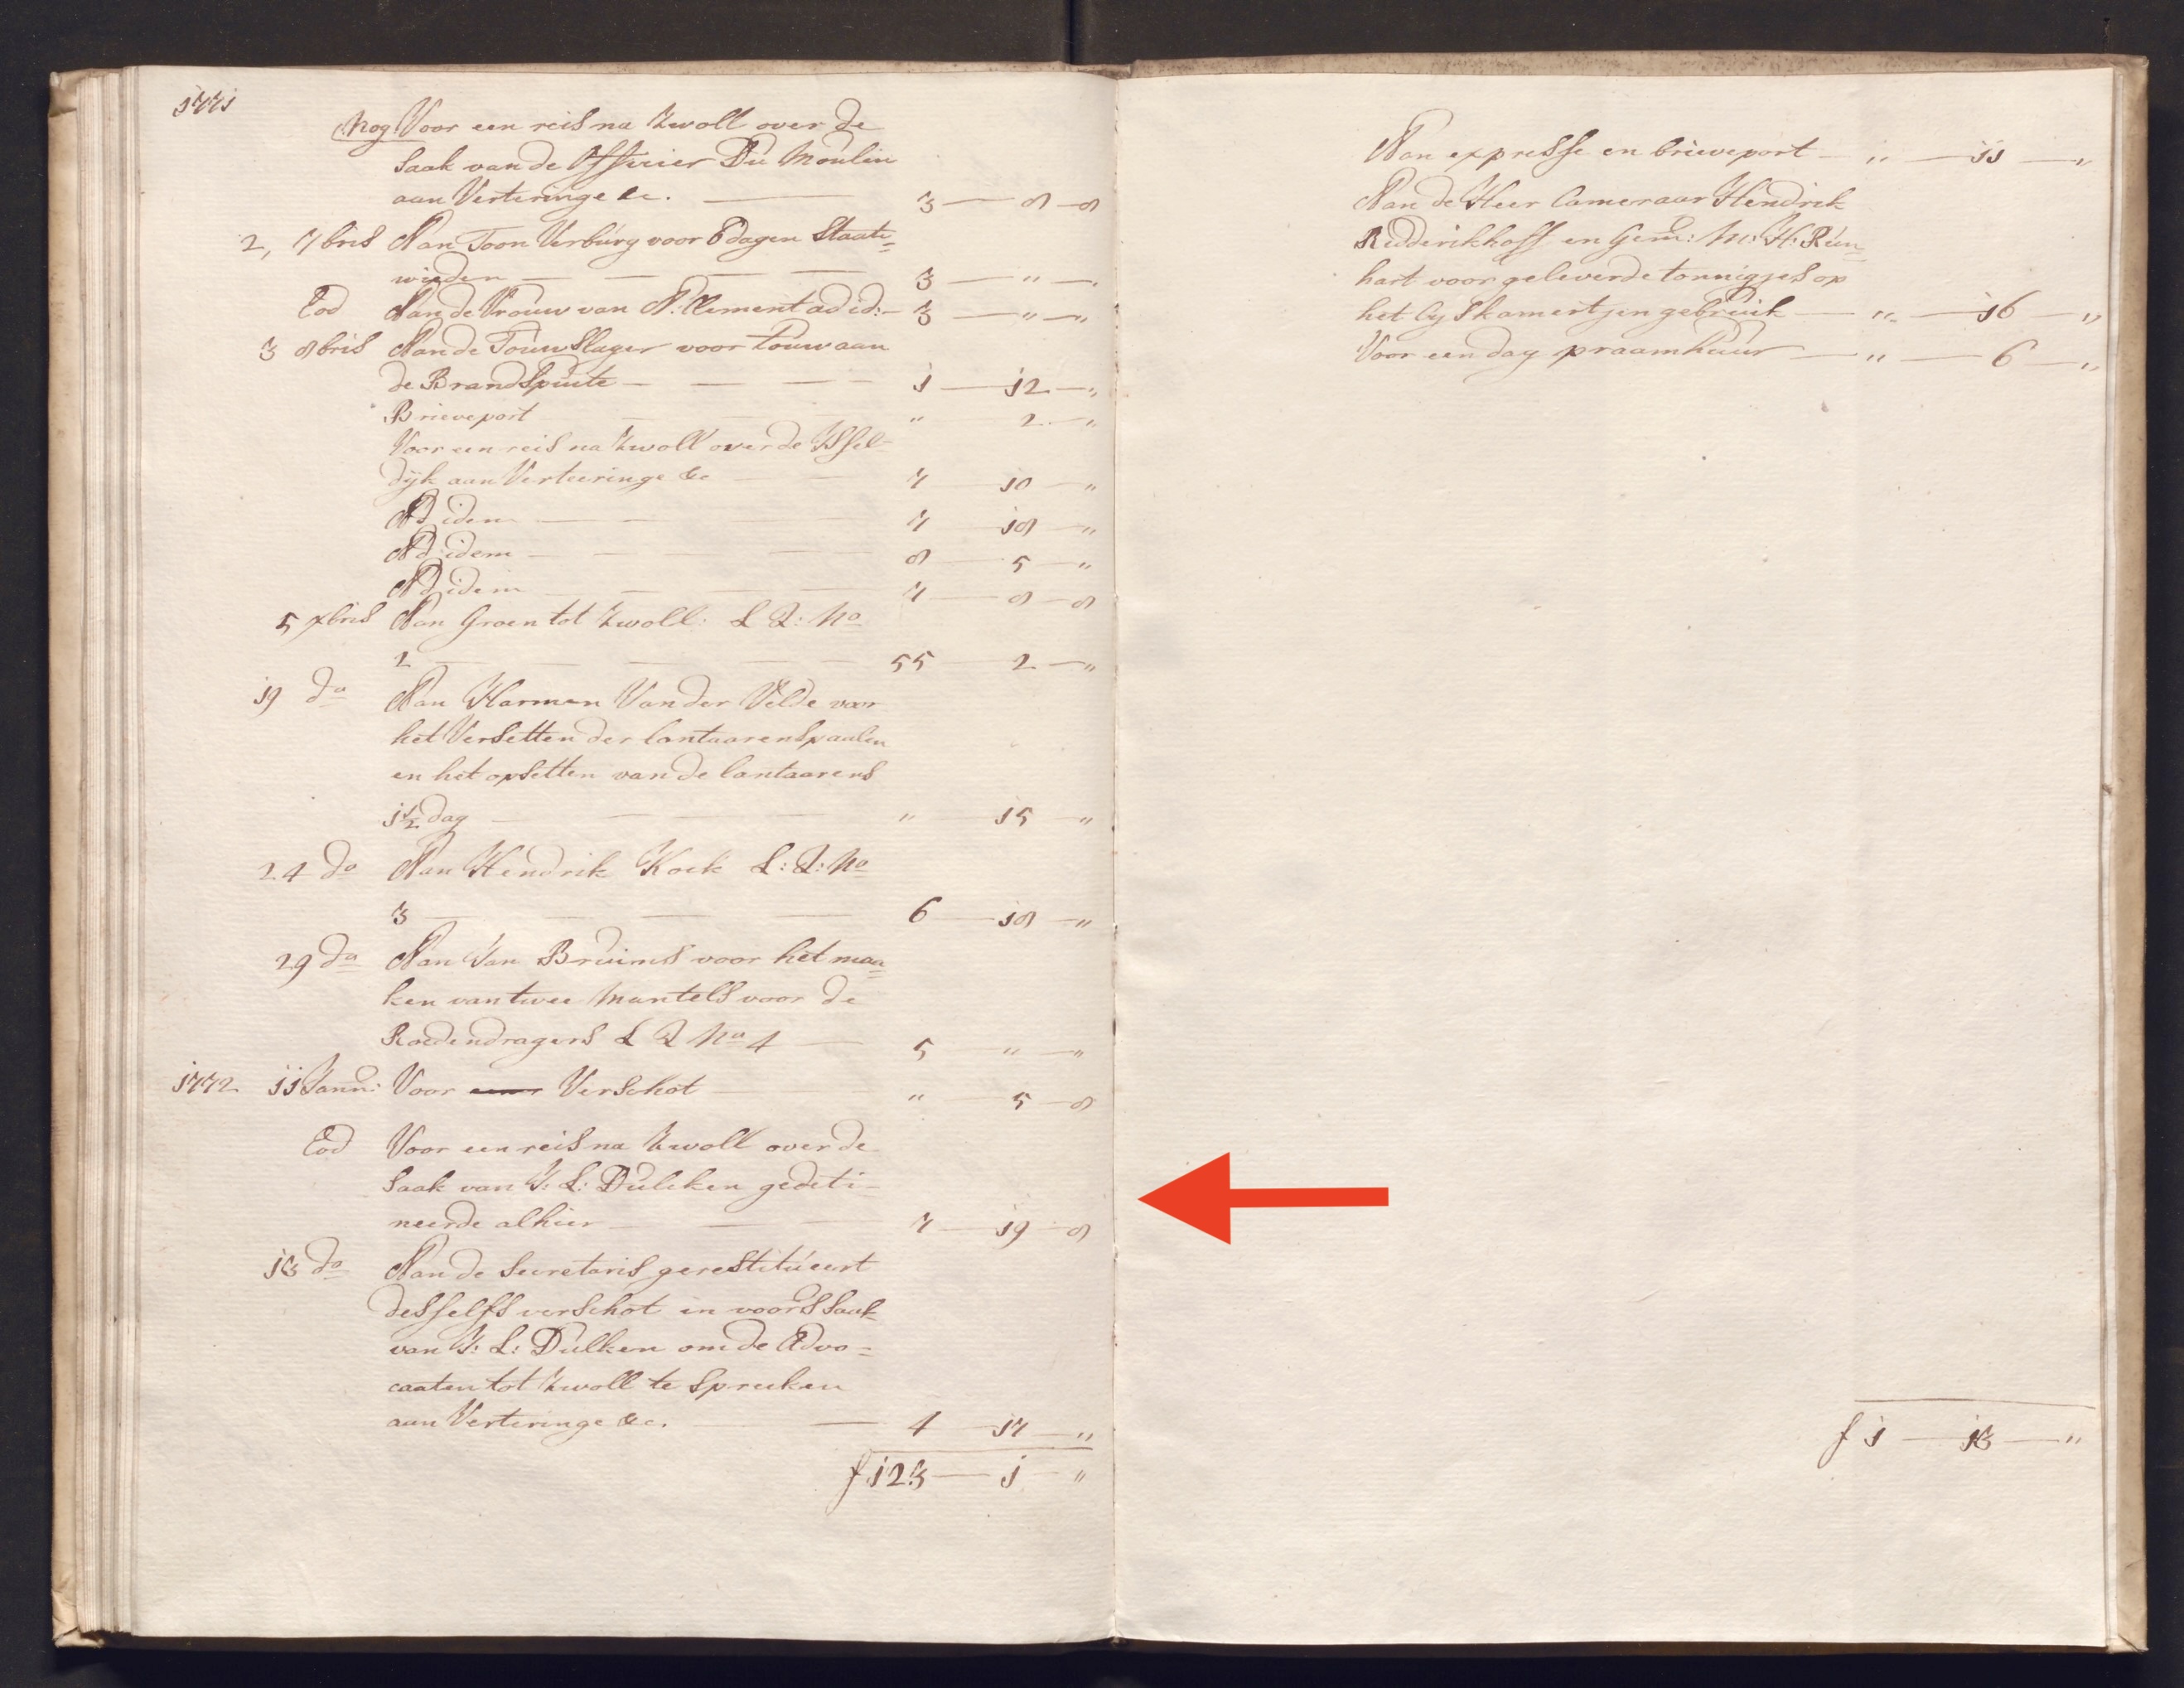 1771
Nog Voor een reis na Zwoll over de
saak van de Officier Du Moulin
aan Verteringe &c. — 3 — 8 — 8
2, 7bris Aan Toon Verburg voor 6 dagen Staats=
wieden — — — — 3 — " — "
Eod Aan de Vrouw van A: Clement ad id: — 3 — " — "
3 8bris Aan de Touwslager voor touw aan
de Brandspuite — — — 1 — 12 — "
Brieveport — — — " — 2 — "
Voor een reis na Zwoll over de Yssel-
dijk aan Verteeringe &c — — 7 — 10 — "
Ad idem — — 7 — 18 — "
Ad idem — — — 8 — 5 — "
Ad idem — — — 7 — 8 — 8
5 xbris Aan Groen tot Zwoll: L Q: No
2 — — — — 55 — 2 — "
19 do Aan Harmen Van der Velde voor
het Versetten der lantaarenspaalen
en het opsetten van de lantaarens
1½ dag — — — " — 15 — "
24 do Aan Hendrik Kock L: Q: No
3 — — — — 6 — 18 — "
29 do Aan Jan Bruins voor het maa=
ken van twee mantels voor de
Roedendragers L Q No 4 — 5 — " — "
1772 11 Jann: Voor Verschot — — " — 5 — 8
Eod Voor een reis na Zwoll over de
saak van J: L: Dulcken gedeti-
neerde alhier — — — 7 — 19 — 8
13 do Aan de Secretaris gerestitueert
desselfs verschot in voors saak
van J: L: Dulken om de Advo=
caaten tot Zwoll te spreeken
aan Verteringe &c. — — 4 — 17 — "
f 123 — 1 — "
Aan expresse en brieveport — " — 11 — "
Aan de Heer Cameraar Hendrik
Ridderikhoff en Gem: M: H: Run=
hart voor geleverde tonnigjes op
het Cyskamertjen gebruik — " — 16 — "
Voor een dag praamhuur — " — 6 — "
f 1 — 13 — "